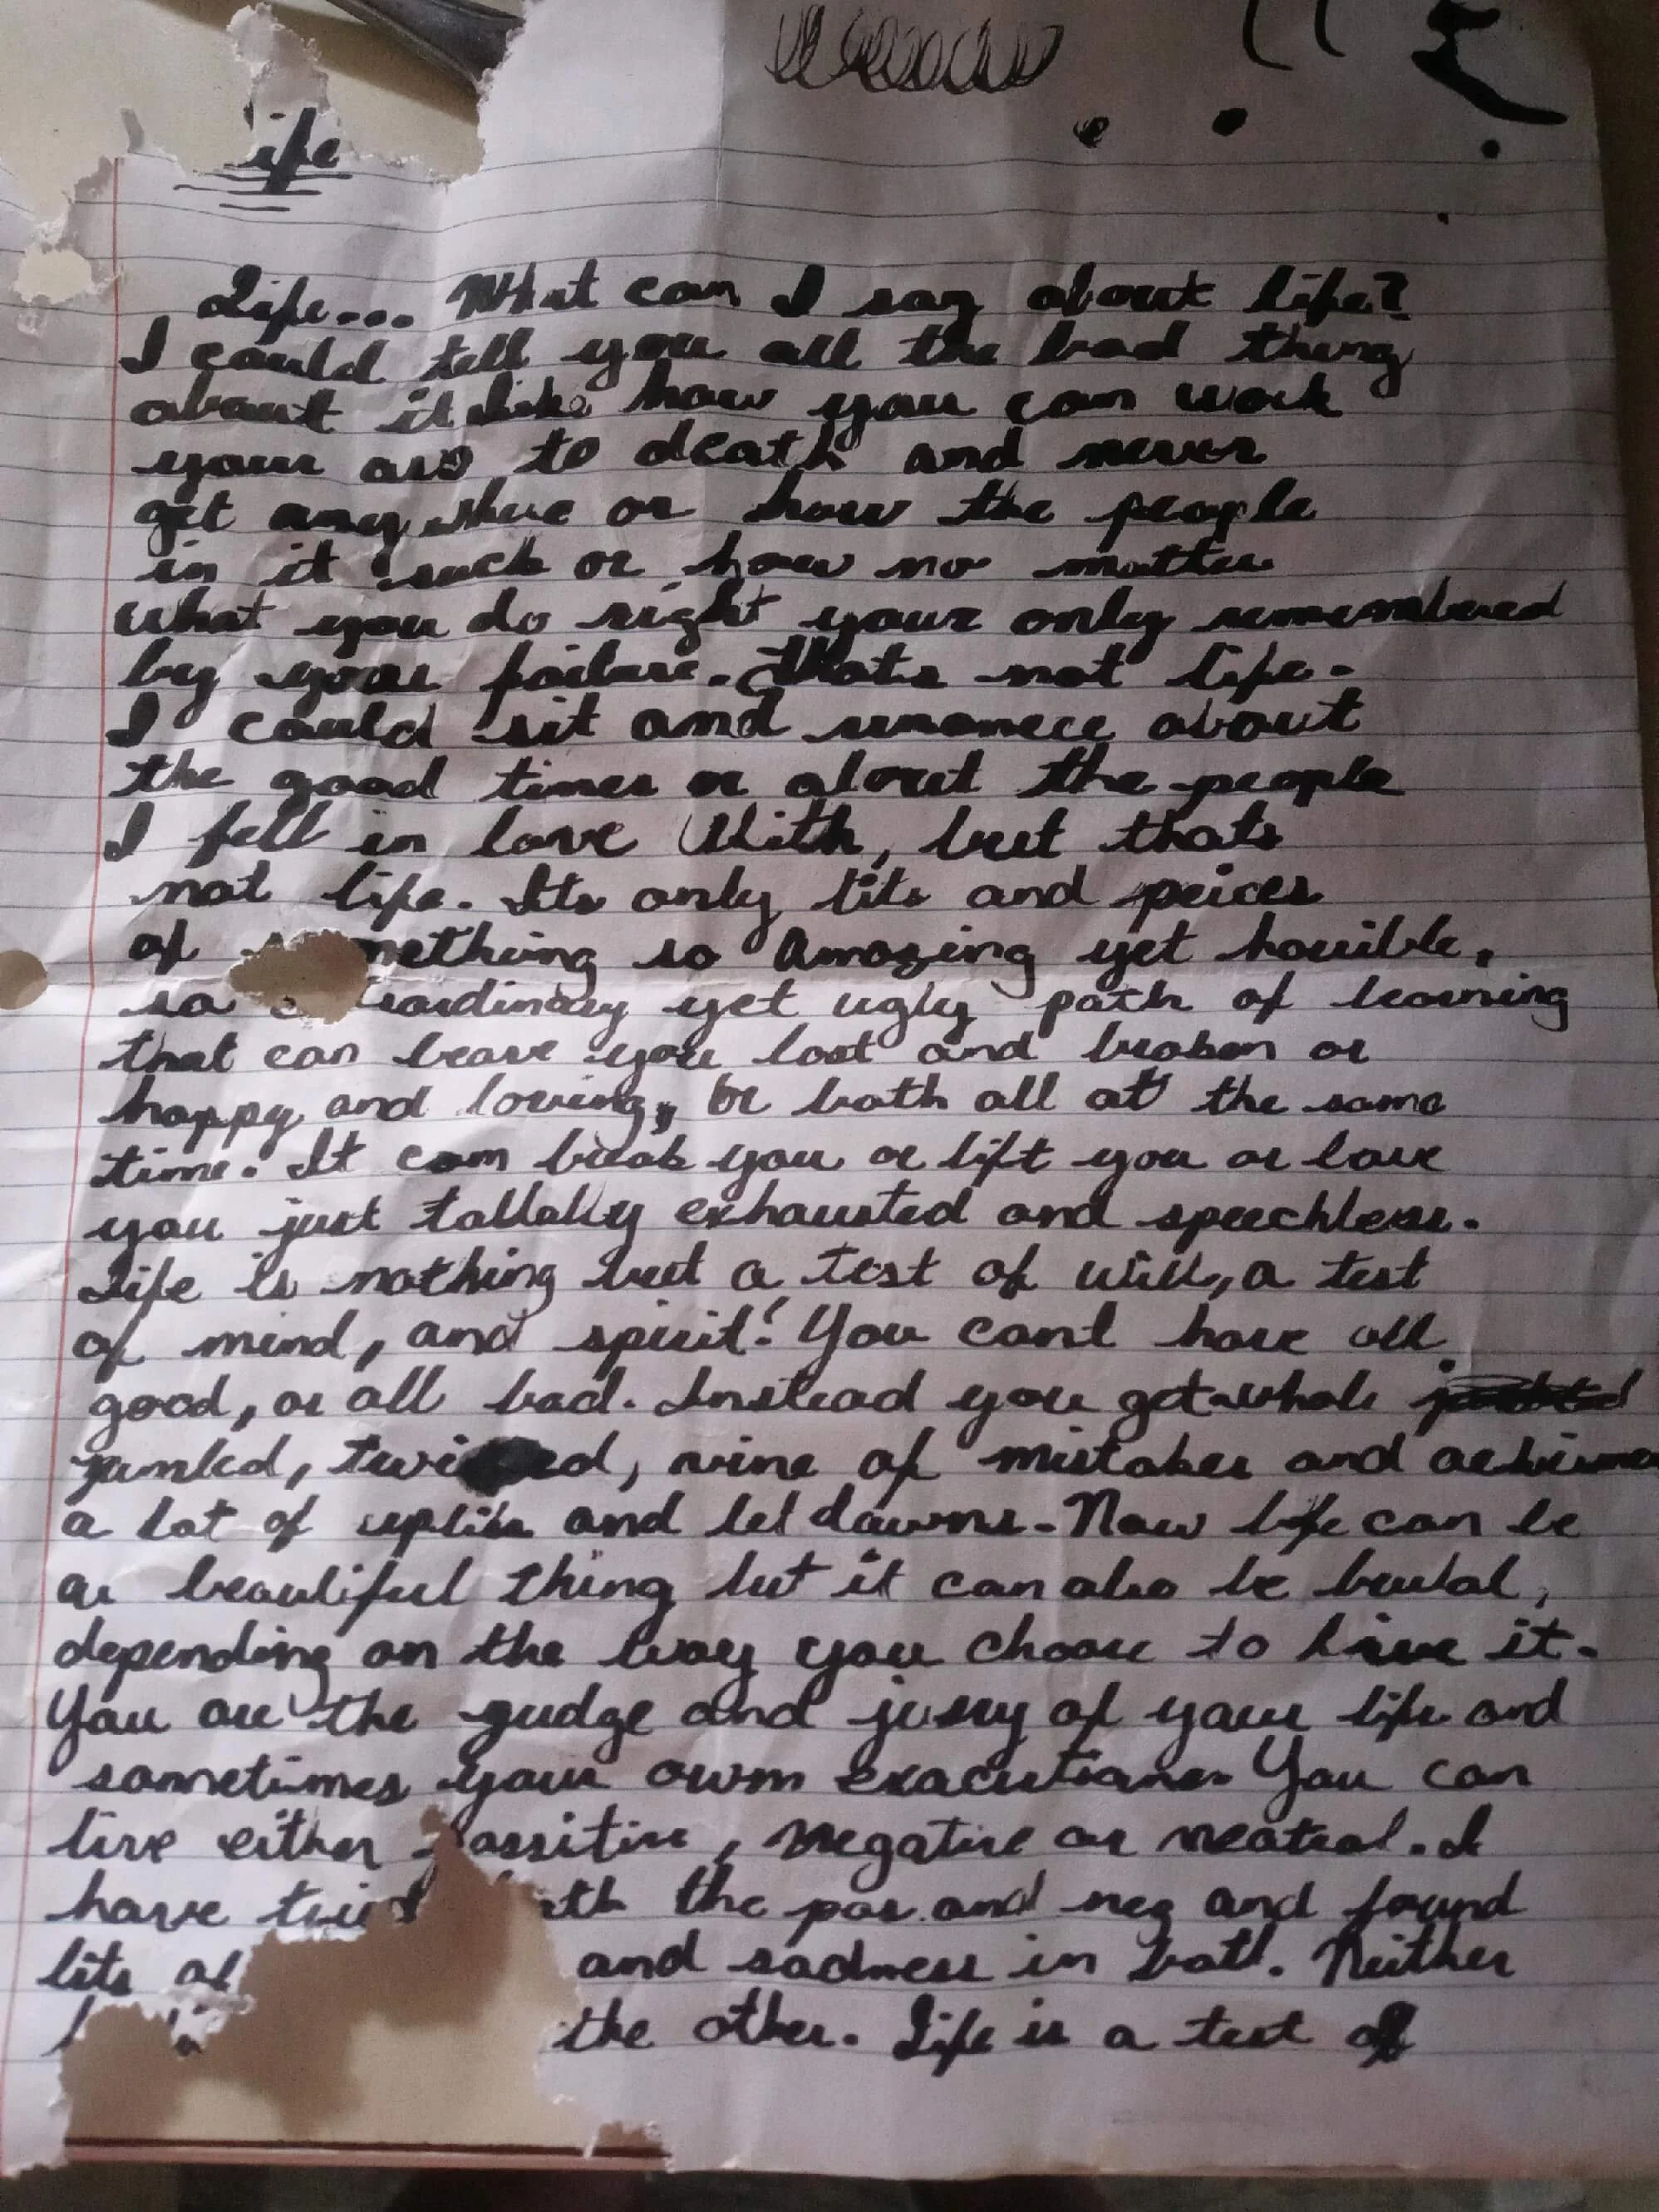 ife
Life... What can I say about life?
I could tell you all the bad thing
about it like how you can work
your ass to death and never
get any where or how the people
in it suck or how no matter
what you do right your only remembered
by your failure. Thats not life.
I could sit and about
the good times or about the people
I fell in love With, but thats
not life. Its only bits and peices
of mething so Amazing yet horrible,
so raordinary yet ugly path of learning
that can leave you lost and broken or
happy and loving, or both all at the same
time. It can break you or lift you or leave
you just exhausted and speechless.
Life is nothing but a test of will, a test
of mind, and spirit! You cant have all
good, or all bad. Instead you get whole
of mistakes and
a lot of and let downs. Now life can be
a beautiful thing but it can also be brutal,
depending on the way you choose to live it.
You are the gudge and jury of your life and
sometimes your own You can
live either possitive, negative or neatral. I
have tried th the pos. and neg and found
bits of and sadness in both. Neither
the other. Life is a test of